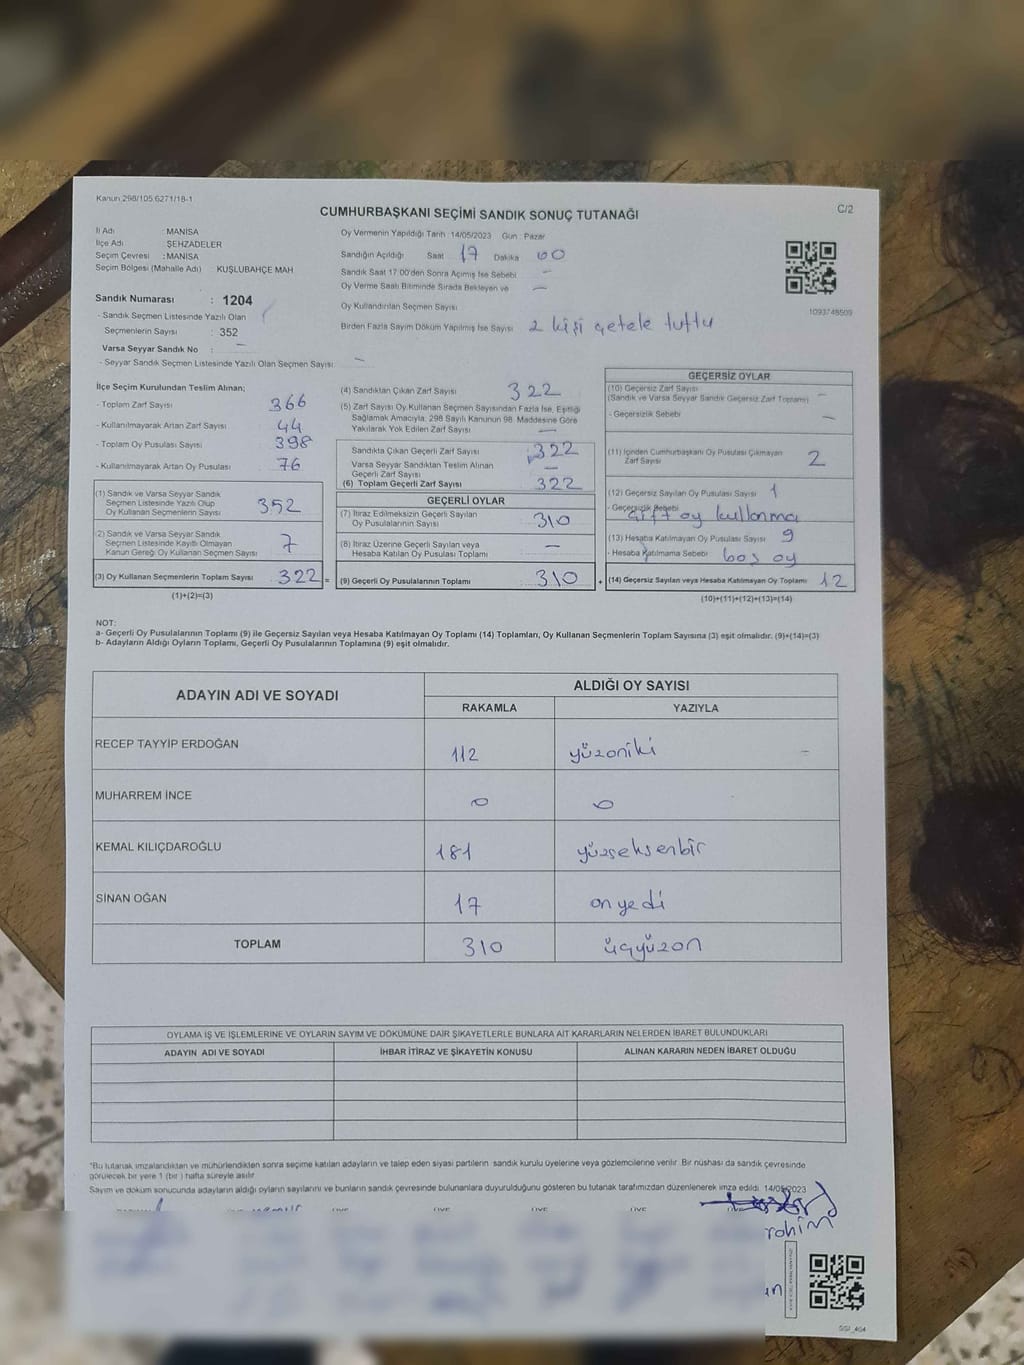 Kanun 298/105 6271/18-1
C/2
CUMHURBAŞKANI SEÇİMİ SANDIK SONUÇ TUTANAĞI
İl Adı : MANİSA
İlçe Adı : ŞEHZADELER
Seçim Çevresi : MANİSA
Seçim Bölgesi (Mahalle Adı) KUŞLUBAHÇE MAH
Sandık Numarası : 1204
- Sandık Seçmen Listesinde Yazılı Olan
Seçmenlerin Sayısı : 352
Varsa Seyyar Sandık No : —
- Seyyar Sandık Seçmen Listesinde Yazılı Olan Seçmen Sayısı: —
Oy Vermenin Yapıldığı Tarih :14/05/2023 Gün : Pazar
Sandığın Açıldığı Saat 17 Dakika 00
Sandık Saat 17:00'den Sonra Açımış İse Sebebi —
Oy Verme Saati Bitiminde Sırada Bekleyen ve —
Oy Kullandırılan Seçmen Sayısı
Birden Fazla Sayım Döküm Yapılmış İse Sayısı 2 kişi çetele tuttu
1093748509
İlçe Seçim Kurulundan Teslim Alınan;
- Toplam Zarf Sayısı 366
- Kullanılmayarak Artan Zarf Sayısı 44
- Toplam Oy Pusulası Sayısı 398
- Kullanılmayarak Artan Oy Pusulası 76
(1) Sandık ve Varsa Seyyar Sandık
Seçmen Listesinde Yazılı Olup
Oy Kullanan Seçmenlerin Sayısı 352
2) Sandık ve Varsa Seyyar Sandık
Seçmen Listesinde Kayıtlı Olmayan
Kanun Gereği Oy Kullanan Seçmen Sayısı 7
(3) Oy Kullanan Seçmenlerin Toplam Sayısı 322 =
(1)+(2)=(3)
(4) Sandıktan Çıkan Zarf Sayısı 322
(5) Zarf Sayısı Oy Kullanan Seçmen Sayısından Fazla İse, Eşitliği
Sağlamak Amacıyla, 298 Sayılı Kanunun 98. Maddesine Göre
Yakılarak Yok Edilen Zarf Sayısı —
Sandıkta Çıkan Geçerli Zarf Sayısı 322
Varsa Seyyar Sandıktan Teslim Alınan
Geçerli Zarf Sayısı —
(6) Toplam Geçerli Zarf Sayısı 322
GEÇERLİ OYLAR
(7) İtiraz Edilmeksizin Geçerli Sayılan
Oy Pusulalarının Sayısı 310
(8) İtiraz Üzerine Geçerli Sayılan veya
Hesaba Katılan Oy Pusulası Toplamı —
(9) Geçerli Oy Pusulalarının Toplamı 310 +
GEÇERSİZ OYLAR
(10) Geçersiz Zarf Sayısı
(Sandık ve Varsa Seyyar Sandık Geçersiz Zarf Toplamı) —
- Geçersizlik Sebebi —
(11) İçinden Cumhurbaşkanı Oy Pusulası Çıkmayan
Zarf Sayısı 2
(12) Geçersiz Sayılan Oy Pusulası Sayısı 1
- Geçersizlik Sebebi çift oy kullanma
(13) Hesaba Katılmayan Oy Pusulası Sayısı 9
- Hesaba Katılmama Sebebi boş oy
(14) Geçersiz Sayılan veya Hesaba Katılmayan Oy Toplamı 12
(10)+(11)+(12)+(13)=(14)
NOT:
a- Geçerli Oy Pusulalarının Toplamı (9) ile Geçersiz Sayılan veya Hesaba Katılmayan Oy Toplamı (14) Toplamları, Oy Kullanan Seçmenlerin Toplam Sayısına (3) eşit olmalıdır. (9)+(14)=(3)
b- Adayların Aldığı Oyların Toplamı, Geçerli Oy Pusulalarının Toplamına (9) eşit olmalıdır.
ADAYIN ADI VE SOYADI
ALDIĞI OY SAYISI
RAKAMLA YAZIYLA
RECEP TAYYİP ERDOĞAN 112 yüzoniki
MUHARREM İNCE 0 0
KEMAL KILIÇDAROĞLU 181 yüzseksenbir
SİNAN OĞAN 17 onyedi
TOPLAM 310 üçyüzon
OYLAMA İŞ VE İŞLEMLERİNE VE OYLARIN SAYIM VE DÖKÜMÜNE DAİR ŞİKAYETLERLE BUNLARA AİT KARARLARIN NELERDEN İBARET BULUNDUKLARI
ADAYIN ADI VE SOYADI İHBAR İTİRAZ VE ŞİKAYETİN KONUSU ALINAN KARARIN NEDEN İBARET OLDUĞU
*Bu tutanak imzalandıktan ve mühürlendikten sonra seçime katılan adayların ve talep eden siyasi partilerin sandık kurulu üyelerine veya gözlemcilerine verilir. Bir nüshası da sandık çevresinde
görülecek bir yere 1 (bir) hafta süreyle asılır.
Sayım ve döküm sonucunda adayların aldığı oyların sayılarını ve bunların sandık çevresinde bulunanlara duyurulduğunu gösteren bu tutanak tarafımızdan düzenlenerek imza edildi. 14/05/2023